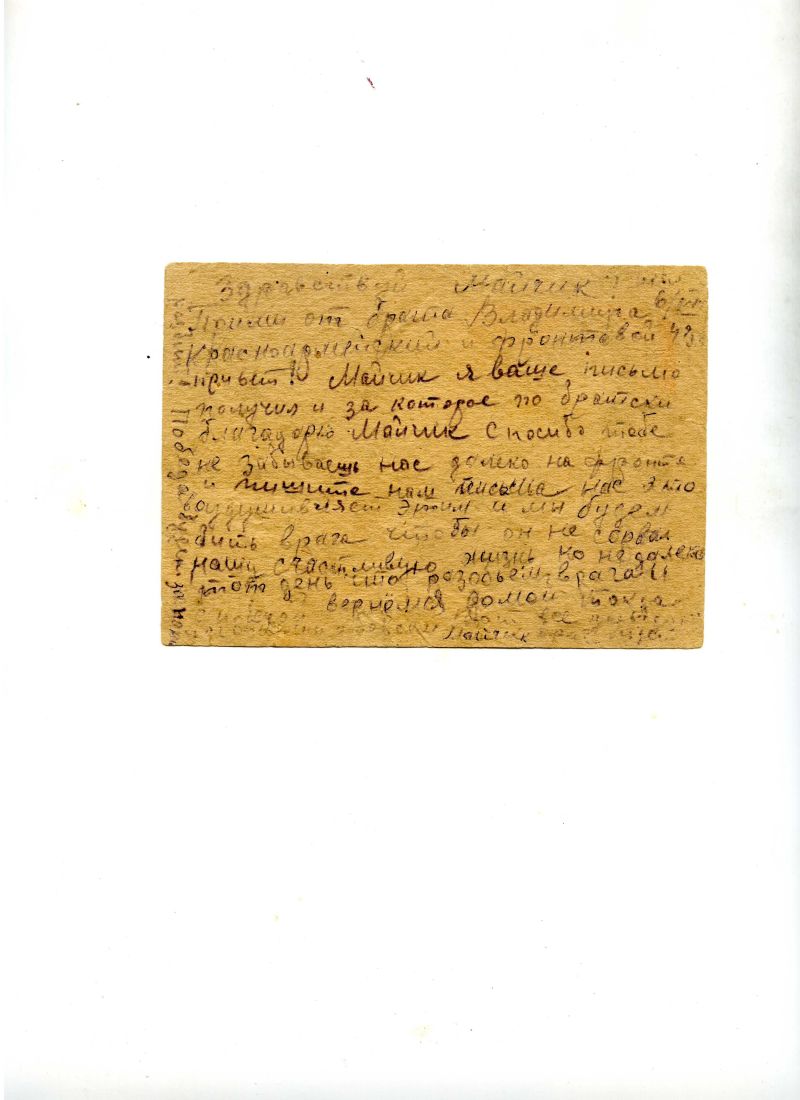 Здравствуй Майчик
Прими от брата Владимира
красноармейский и фронтовой 43
привет! Майчик я ваше письмо
получил и за которое по братски
благадорю Майчик спасибо тебе
не забываешь нас далеко на фронте
и пишите нам письма нас это
воодушивляет Этим и мы будем
бить врага чтобы он не сорвал
нашу счастливую жизнь но недалеко
тот день что разобьем врага и
вернёмся домой тогда
все
Майчик
Победа будет за нами